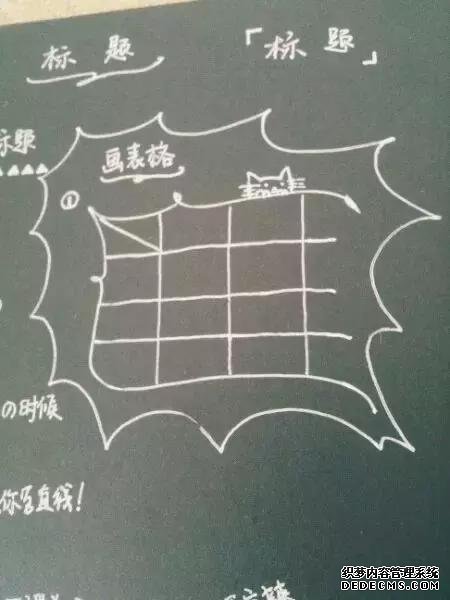 标题 「标题」
标题
画表格
①
の时候
你写直线!
织梦内容管理系统
DEDECMS.COM